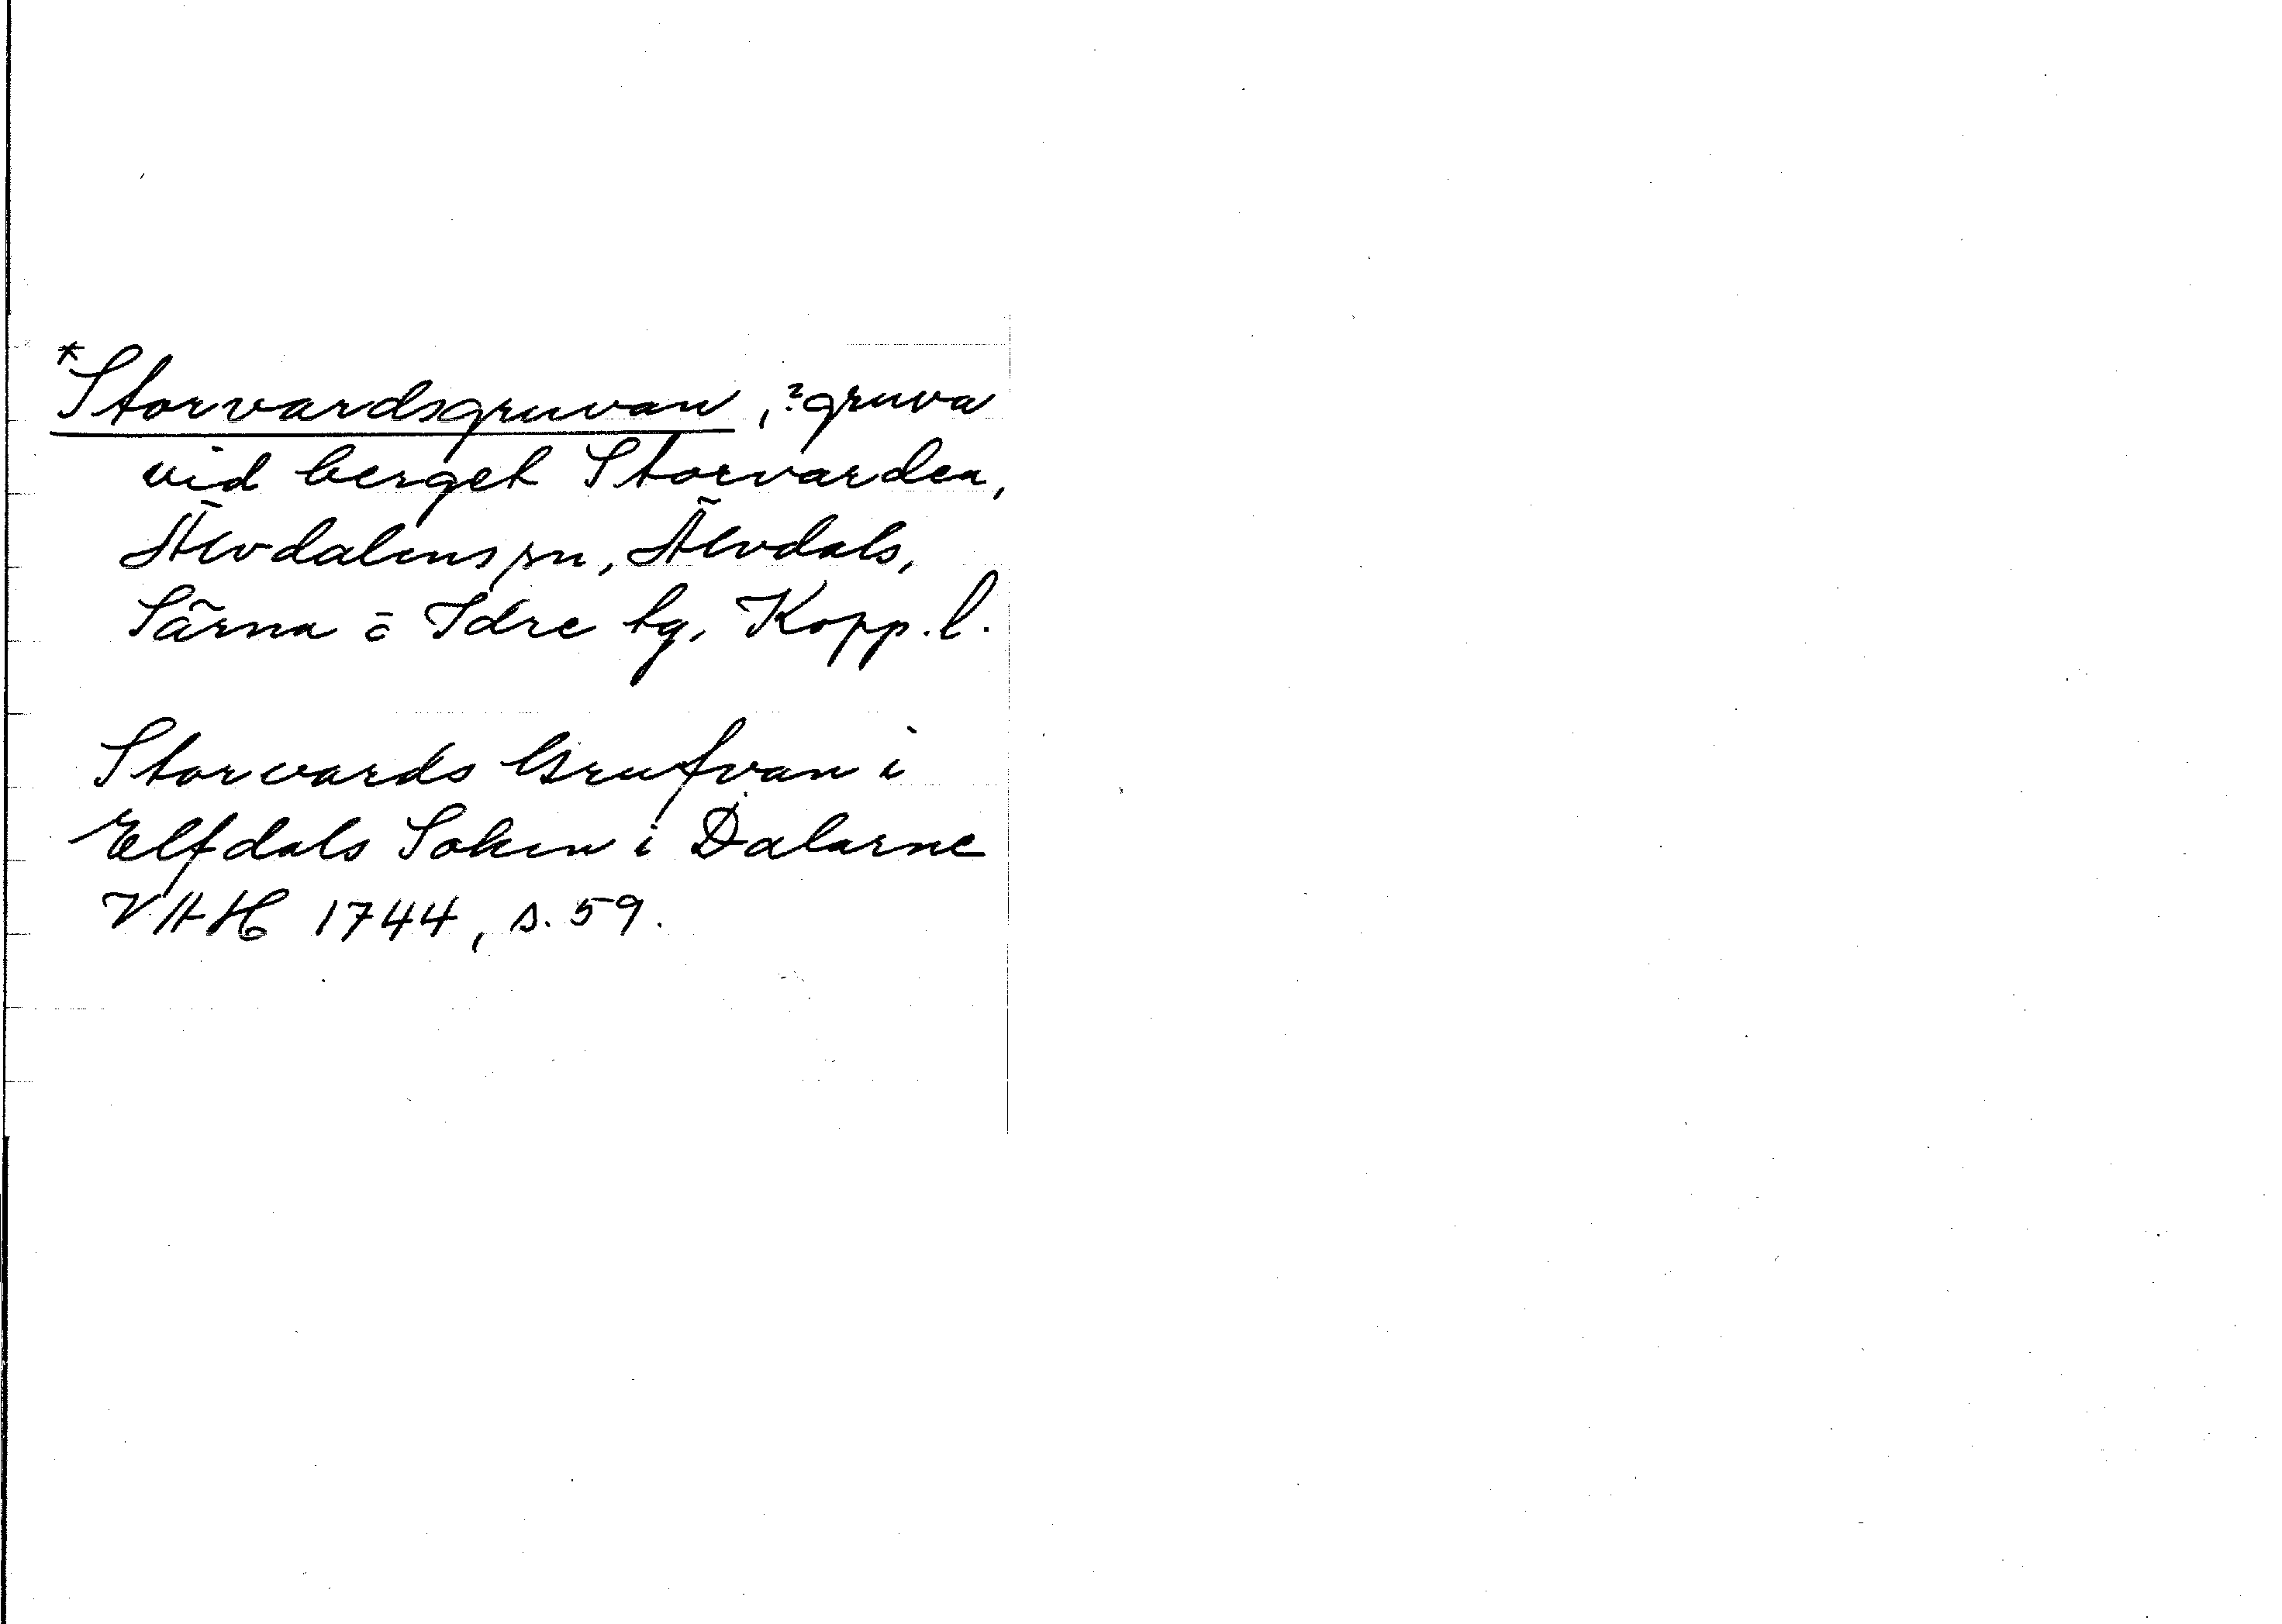 *Storvardsgruvan, ?gruva
vid berget Storvarden,
Älvdalens sn, Älvdals,
Särna o Idre tg, Kopp. l.
Storvards Grufvan i
Elfdals Soken i Dalarne
VAH 1744, s. 59.